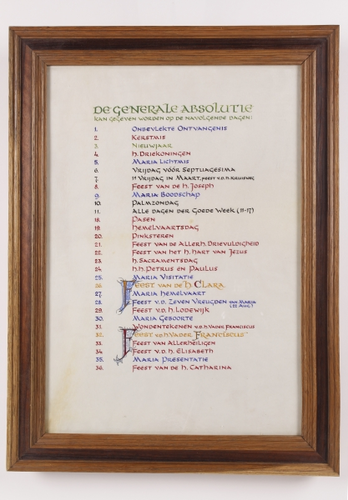 De Generale Absolutie
kan gegeven worden op de navolgende dagen:
1. Onbevlekte Ontvangenis
2. Kerstmis
3. Nieuwjaar
4. H. Driekoningen
5. Maria Lichtmis
6. Vrijdag vóór Septuagesima
7. 1e Vrijdag in Maart, feest v.d. H. Kruisweg
8. Feest van de H. Joseph
9. Maria Boodschap
10. Palmzondag
11. Alle dagen der Goede Week (11-17)
18. Pasen
19. Hemelvaartsdag
20. Pinksteren
21. Feest van de Allerh. Drievuldigheid
22. Feest van het H. Hart van Jezus
23. H. Sacramentsdag
24. H.H. Petrus en Paulus
25. Maria Visitatie
26. Feest van de H. Clara
27. Maria Hemelvaart
28. Feest v.d. Zeven Vreugden van Maria
29. Feest v.d. H. Lodewijk
30. Maria Geboorte
31. Wondentekenen v.d. H. Vader Franciscus
32. Feest v.d. H. Vader "Franciscus"
33. Feest van Allerheiligen
34. Feest v.d. H. Elisabeth
35. Maria Presentatie
36. Feest van de H. Catharina